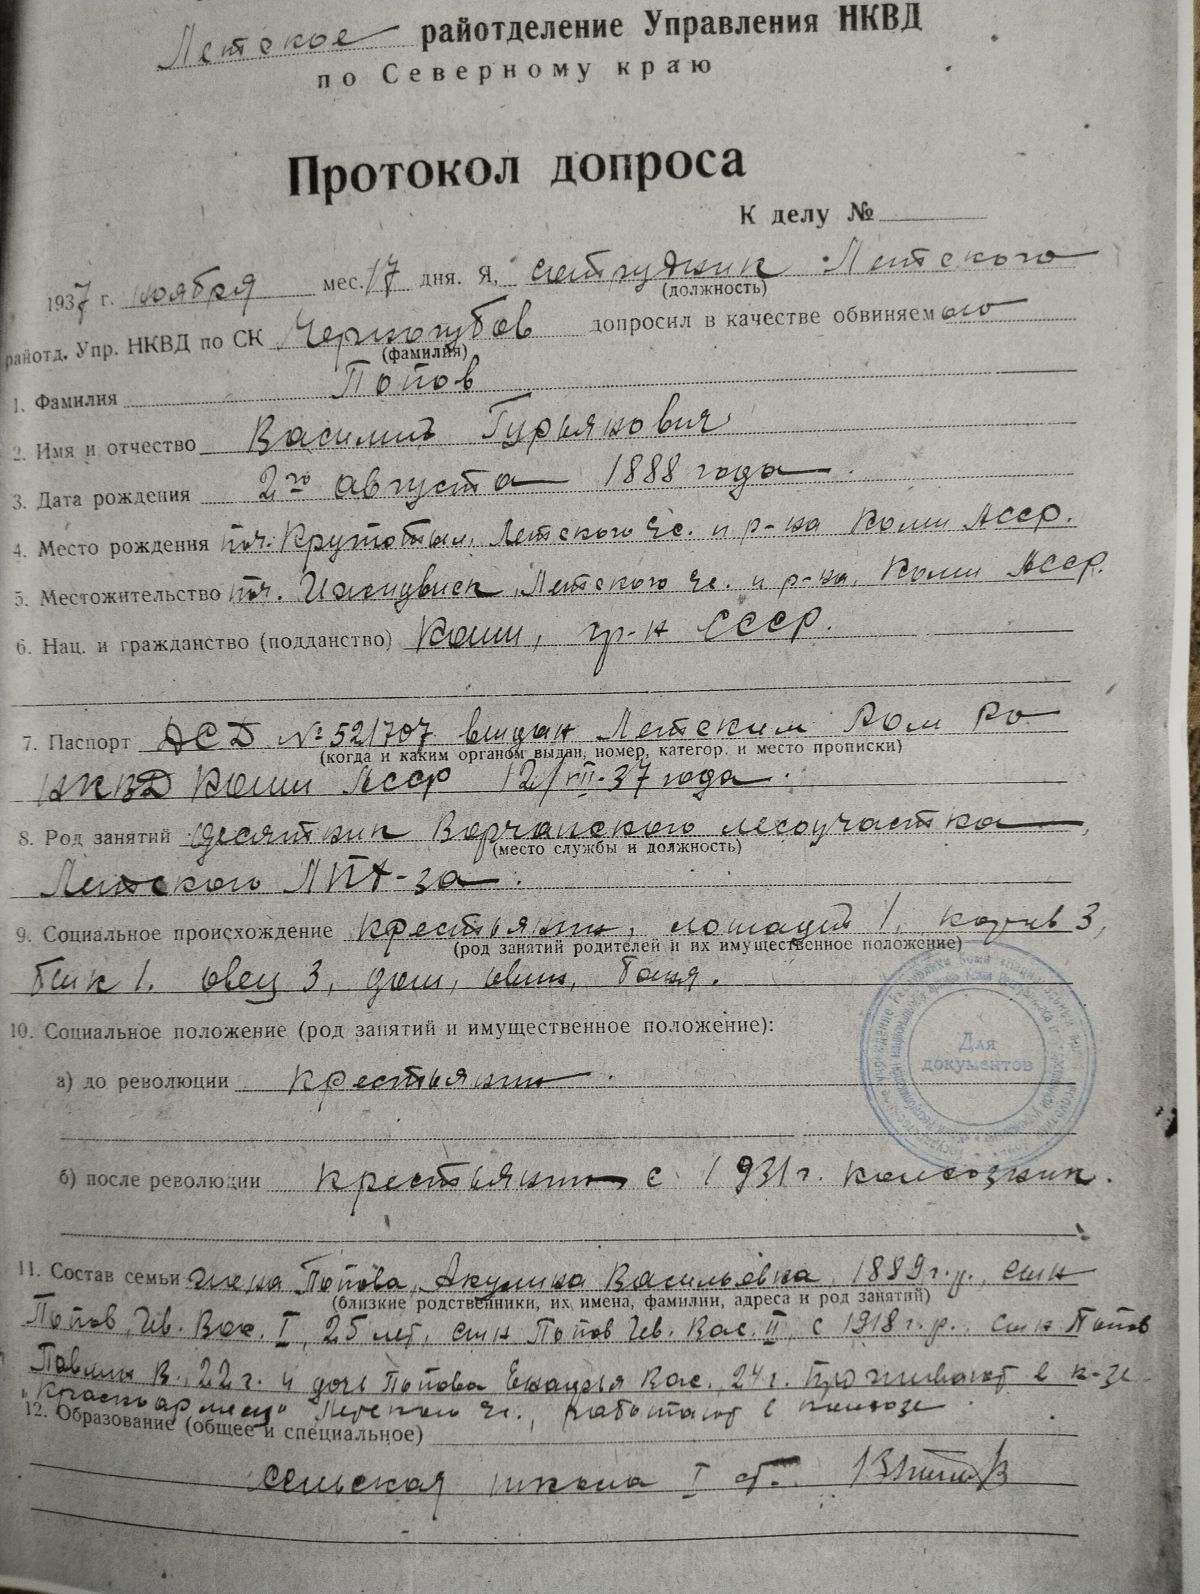 Летское райотделение Управления НКВД
по Северному краю
Протокол допроса
К делу №
1937 г. ноября мес. 17 дня. Я, сотрудник Летского
(должность)
райотд. Упр. НКВД по СК Черногубов допросил в качестве обвиняемого
(фамилия)
1. Фамилия Попов
2. Имя и отчество Василий Гурьянович
3. Дата рождения 2го августа 1888 года.
4. Место рождения поч. Летского с. и р-на Коми АССР.
5. Местожительство поч. Летского с. и р-на, Коми АССР.
6. Нац. и гражданство (подданство) Коми, гр-н СССР.
7. Паспорт № 521707 выдан Летским Ром Ро
(когда и каким органом выдан, номер, категор. и место прописки)
НКВД Коми АССР 12/VII-37 года.
8. Род занятий десятник лесоучастка,
(место службы и должность)
Летского ЛПХ-за.
9. Социальное происхождение крестьянин, лошадей 1, коров 3,
(род занятий родителей и их имущественное положение)
бык 1. овец 3, дом, овин, баня.
10. Социальное положение (род занятий и имущественное положение):
а) до революции крестьянин.
Для
документов
б) после революции крестьянин с 1931 г. колхозник.
11. Состав семьи жена Попова, Акулина Васильевна, 1889 г.р., сын
(близкие родственники, их имена, фамилии, адреса и род занятий)
Попов, Ив. Вас. I, 25 лет, сын Попов Ив. Вас. II, с 1918 г.р. сын Попов
Павлин В., 22 г. и дочь Попова Вас., 24 г. Проживают в к-зе
"Красноармеец" Летского с., работают в колхозе.
12. Образование (общее и специальное)
сельская школа I ст.